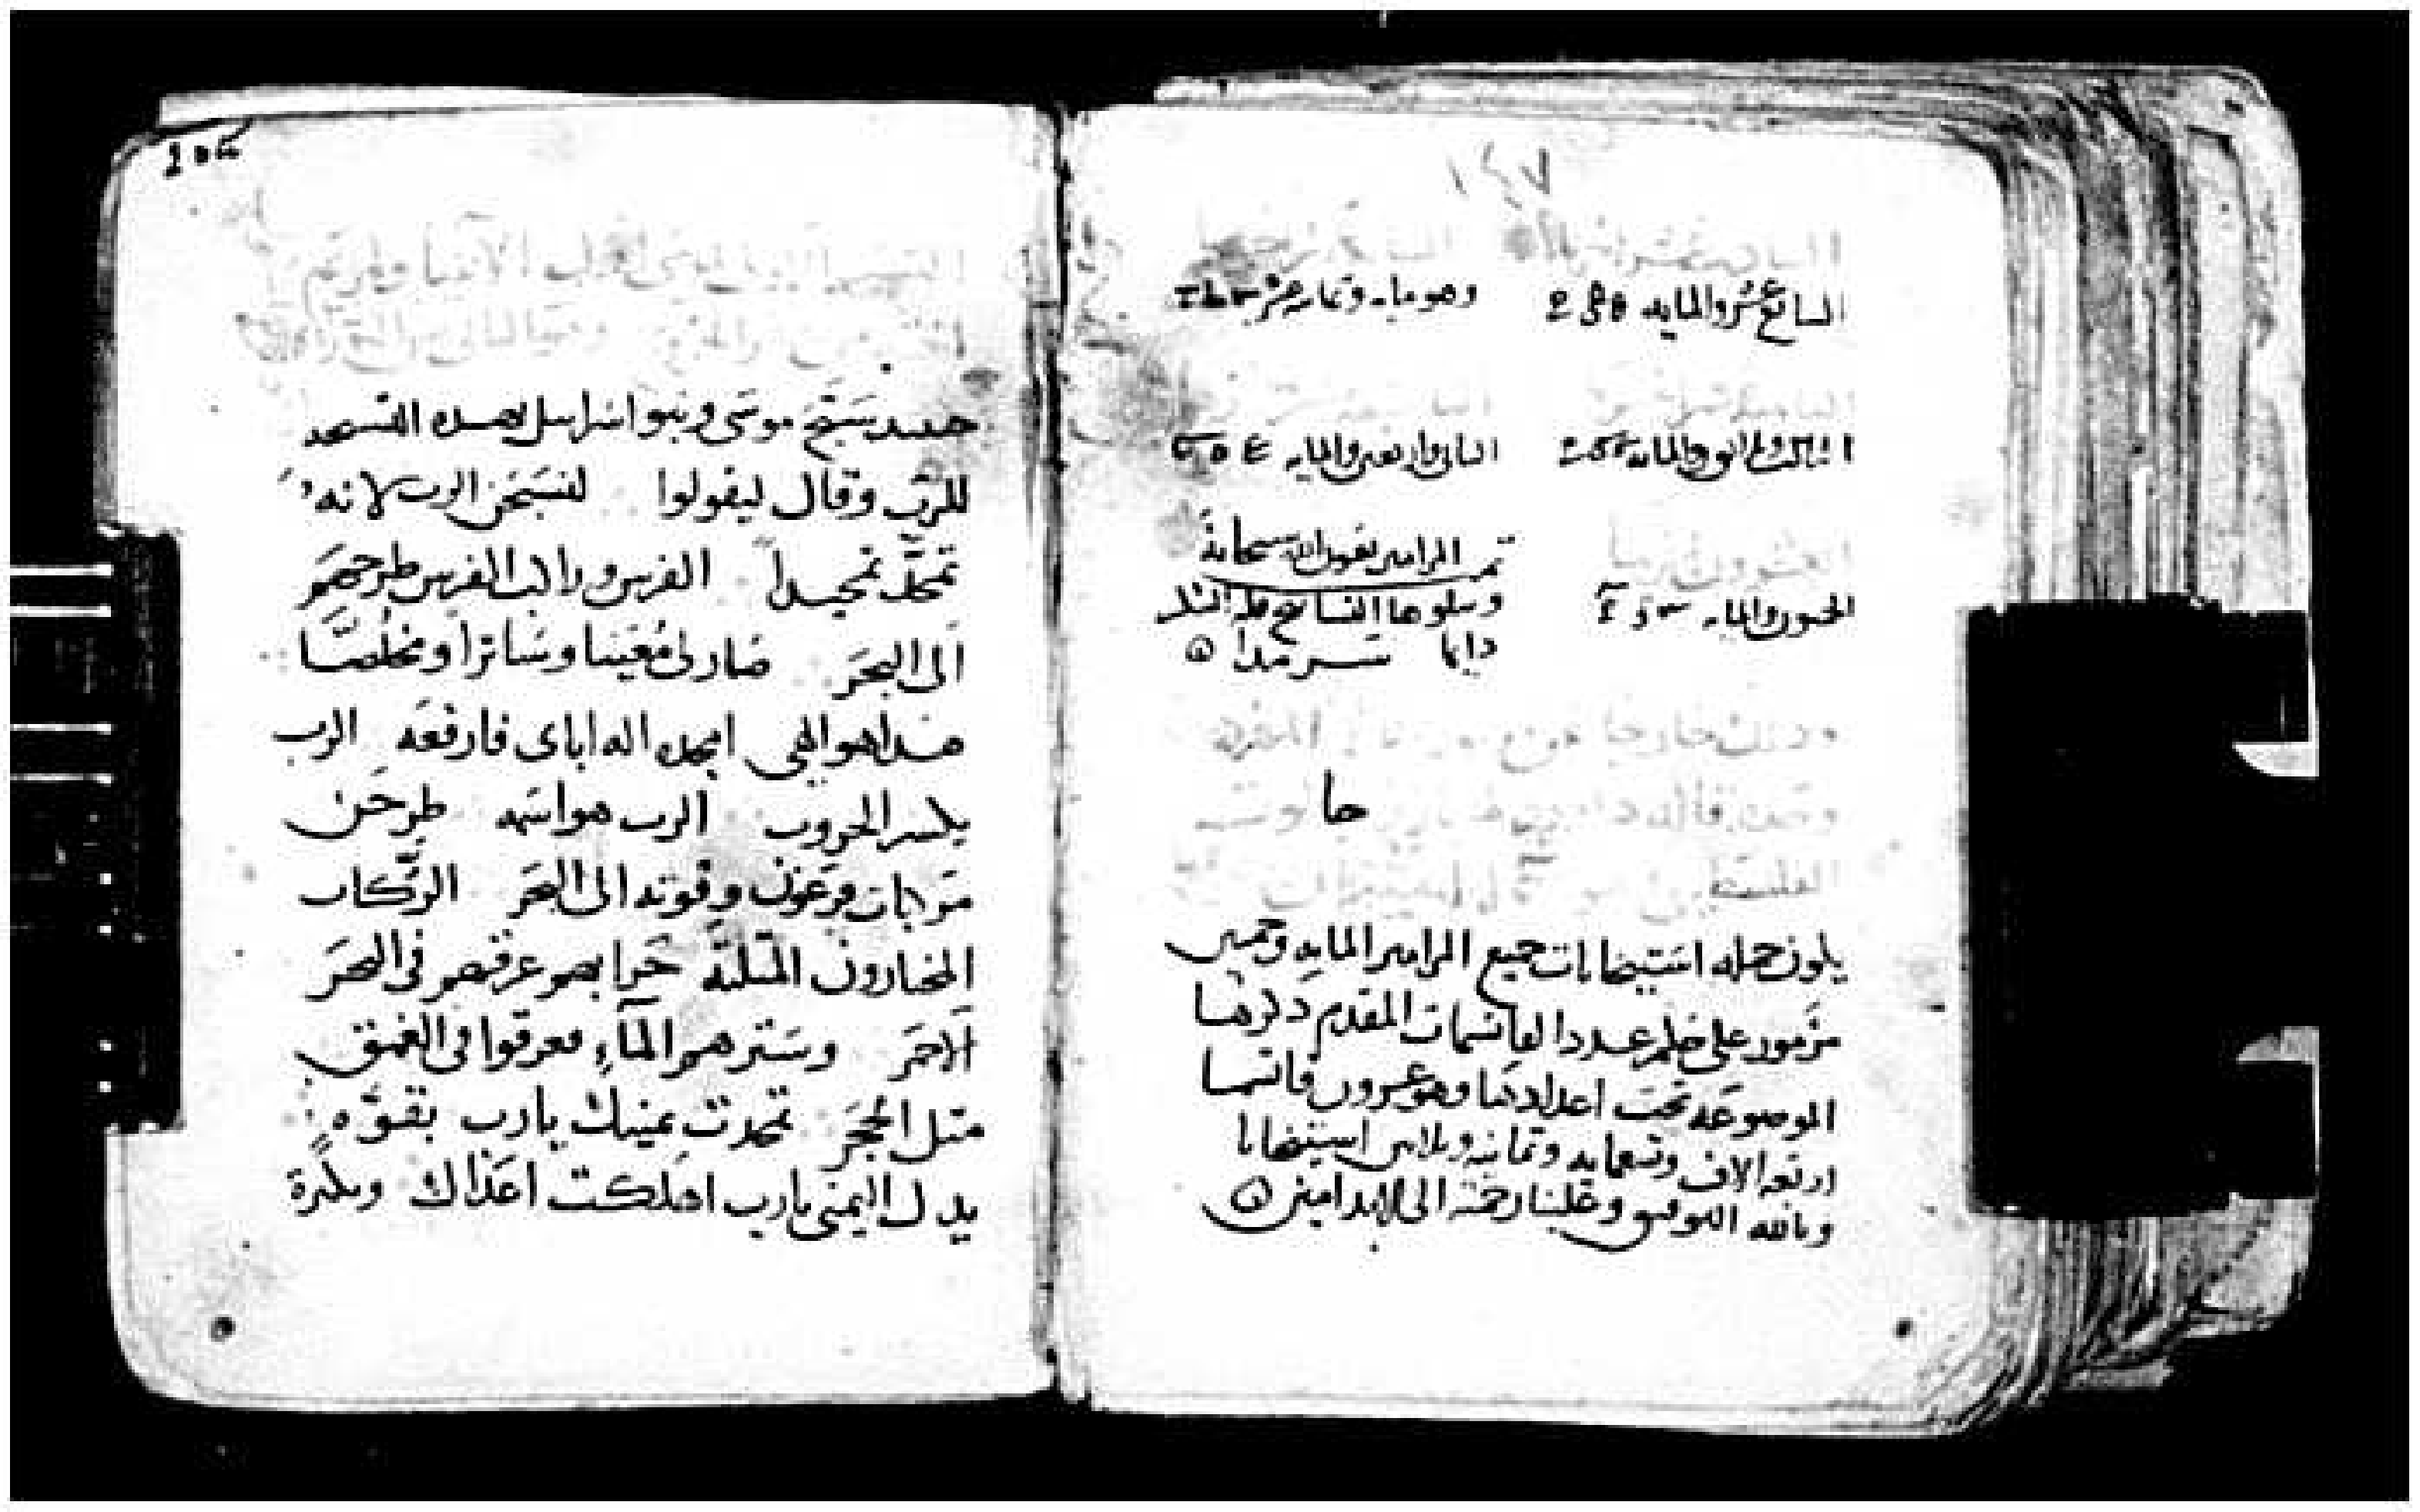 ١٤٧
السابع عشر والمايه وهو مايه وثمانيه عشر
والمايه الثاني واربعين والمايه
الخمسون والمايه
تمت المزامير بعون الله سبحانه
دايما سرمدا
يكون جمله استيخانات جميع المزامير المايه وخمسين
مزمور على حكم عدد المقدم ذكرها
الموضوعه تحت اعدادها وهو عشرون
اربعه الاف وتسعمايه وثمانيه وثلاثين استيخانا
وبالله التوفيق وعلينا رحمته الى الابد امين
حينيد سبح موسى وبنوا اسراييل بهده التسبحه
للرب وقال ليقولوا لنسبحن الرب لانه
تمجد تمجيداً الفرس وراكب الفرس طرحهم
الى البحر صار لى مُعينا وساتراً ومخلصا
هدا هو الهي امجده اله اباى فارفعه الرب
يكسر الحروب الرب هو اسمه طرح
مركبات فرعون وقوته الى البحر الركاب
المختارون المثلثه غرقهم فى البحر
الاحمر وسترهم المآء فغرقوا فى العمق
مثل الحجر تمجدت يمينك يارب بقوّه
يدك اليمنى يارب اهلكت اعداك وبكثرة